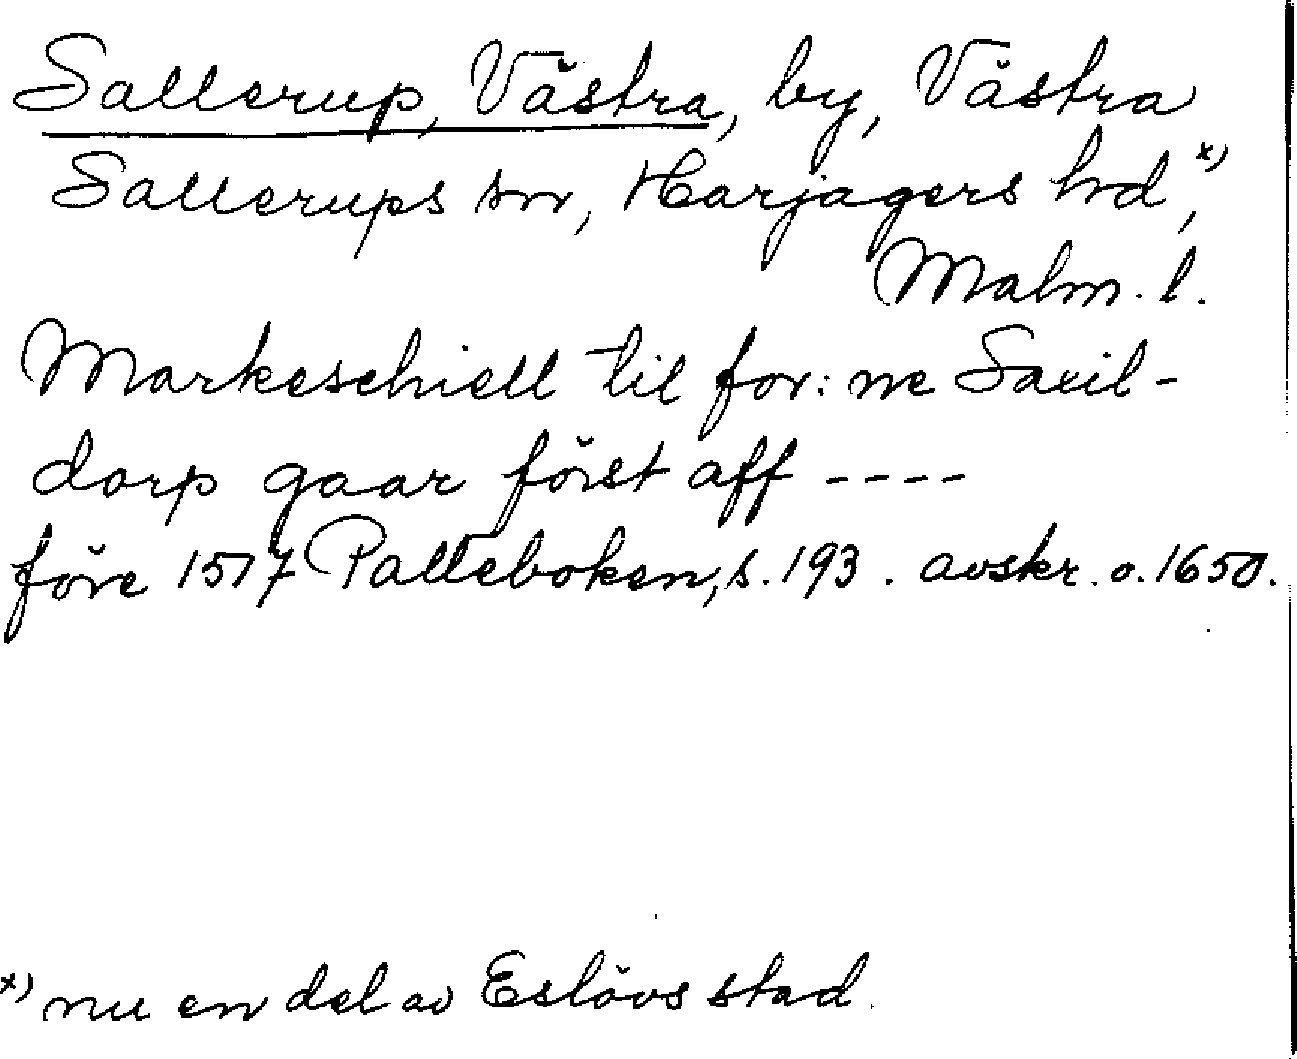 Sallerup, Västra, by, Västra
Sallerups sn, Harjagers hd, x)
Malm. l.
Markeschiell til for: ne Saxil-
dorp gaar först aff ----
före 1517 Palteboken, s. 193. avskr. o. 1650.
x) nu en del av Eslövs stad.